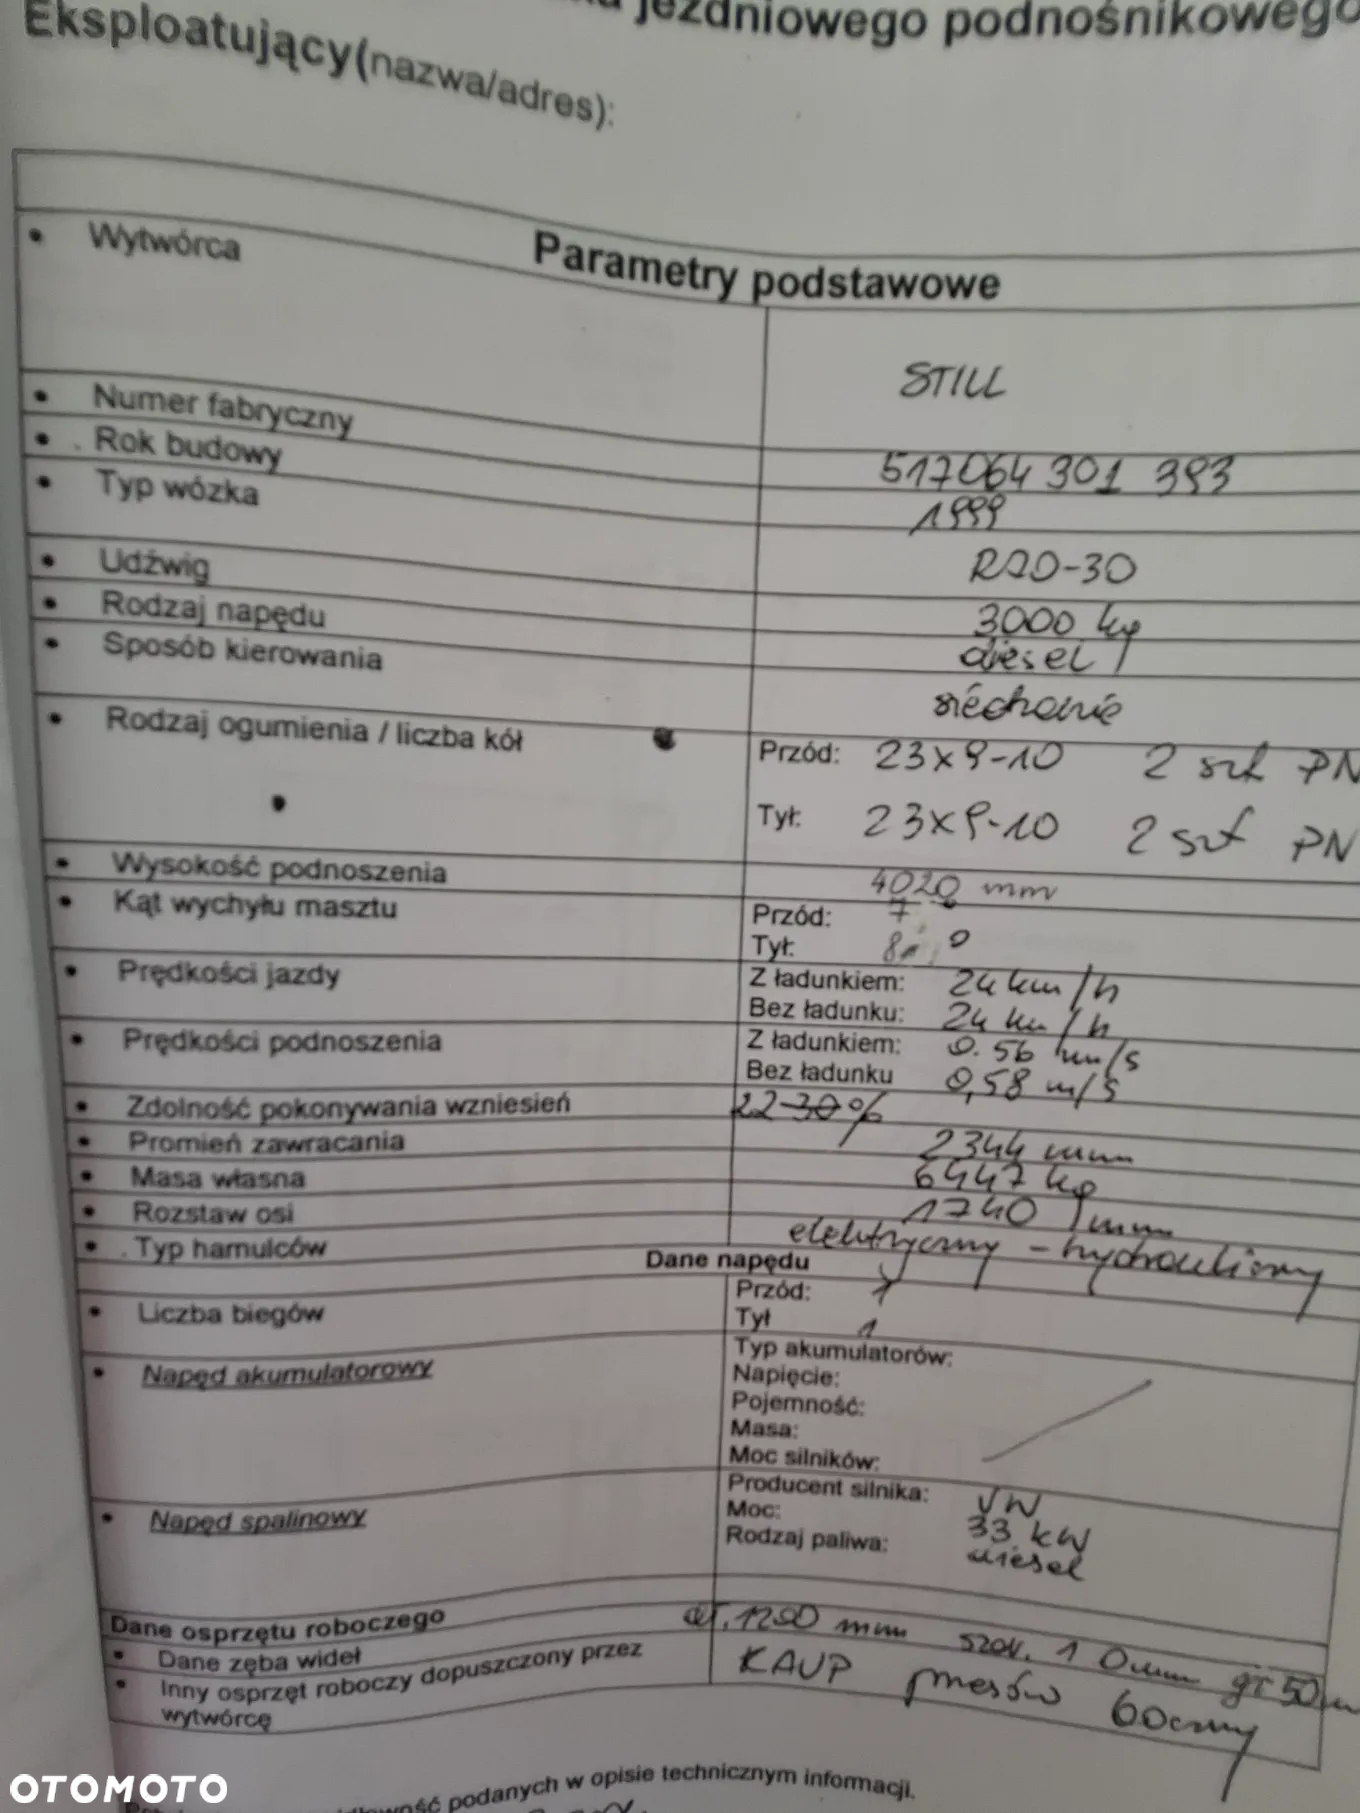 jezdniowego podnośnikowego
Eksploatujący(nazwa/adres):
Parametry podstawowe
• Wytwórca STILL
• Numer fabryczny 517064 301 393
• Rok budowy 1999
• Typ wózka R70-30
• Udźwig 3000 kg
• Rodzaj napędu diesel
• Sposób kierowania
• Rodzaj ogumienia / liczba kół Przód: 23x9-10 2 szt PN
Tył: 23x9-10 2 szt PN
• Wysokość podnoszenia 4020 mm
• Kąt wychyłu masztu Przód: 7
Tył: 8
• Prędkości jazdy Z ładunkiem: 24 km/h
Bez ładunku: 24 km/h
• Prędkości podnoszenia Z ładunkiem: 0.56 mm/s
Bez ładunku 0,58 m/s
• Zdolność pokonywania wzniesień 22-30%
• Promień zawracania 2344 mm
• Masa własna 6447 kg
• Rozstaw osi 1740 mm
• Typ hamulców elektryczny - hydrauliczny
Dane napędu
• Liczba biegów Przód: 1
Tył 1
• Napęd akumulatorowy Typ akumulatorów:
Napięcie:
Pojemność:
Masa:
Moc silników:
• Napęd spalinowy Producent silnika: VW
Moc: 33 kW
Rodzaj paliwa: diesel
Dane osprzętu roboczego
• Dane zęba wideł dł. 1200 mm szer. 1 0mm gr 50
• Inny osprzęt roboczy dopuszczony przez KAUP przesów boczny
wytwórcę
podanych w opisie technicznym informacji.
OTOMOTO